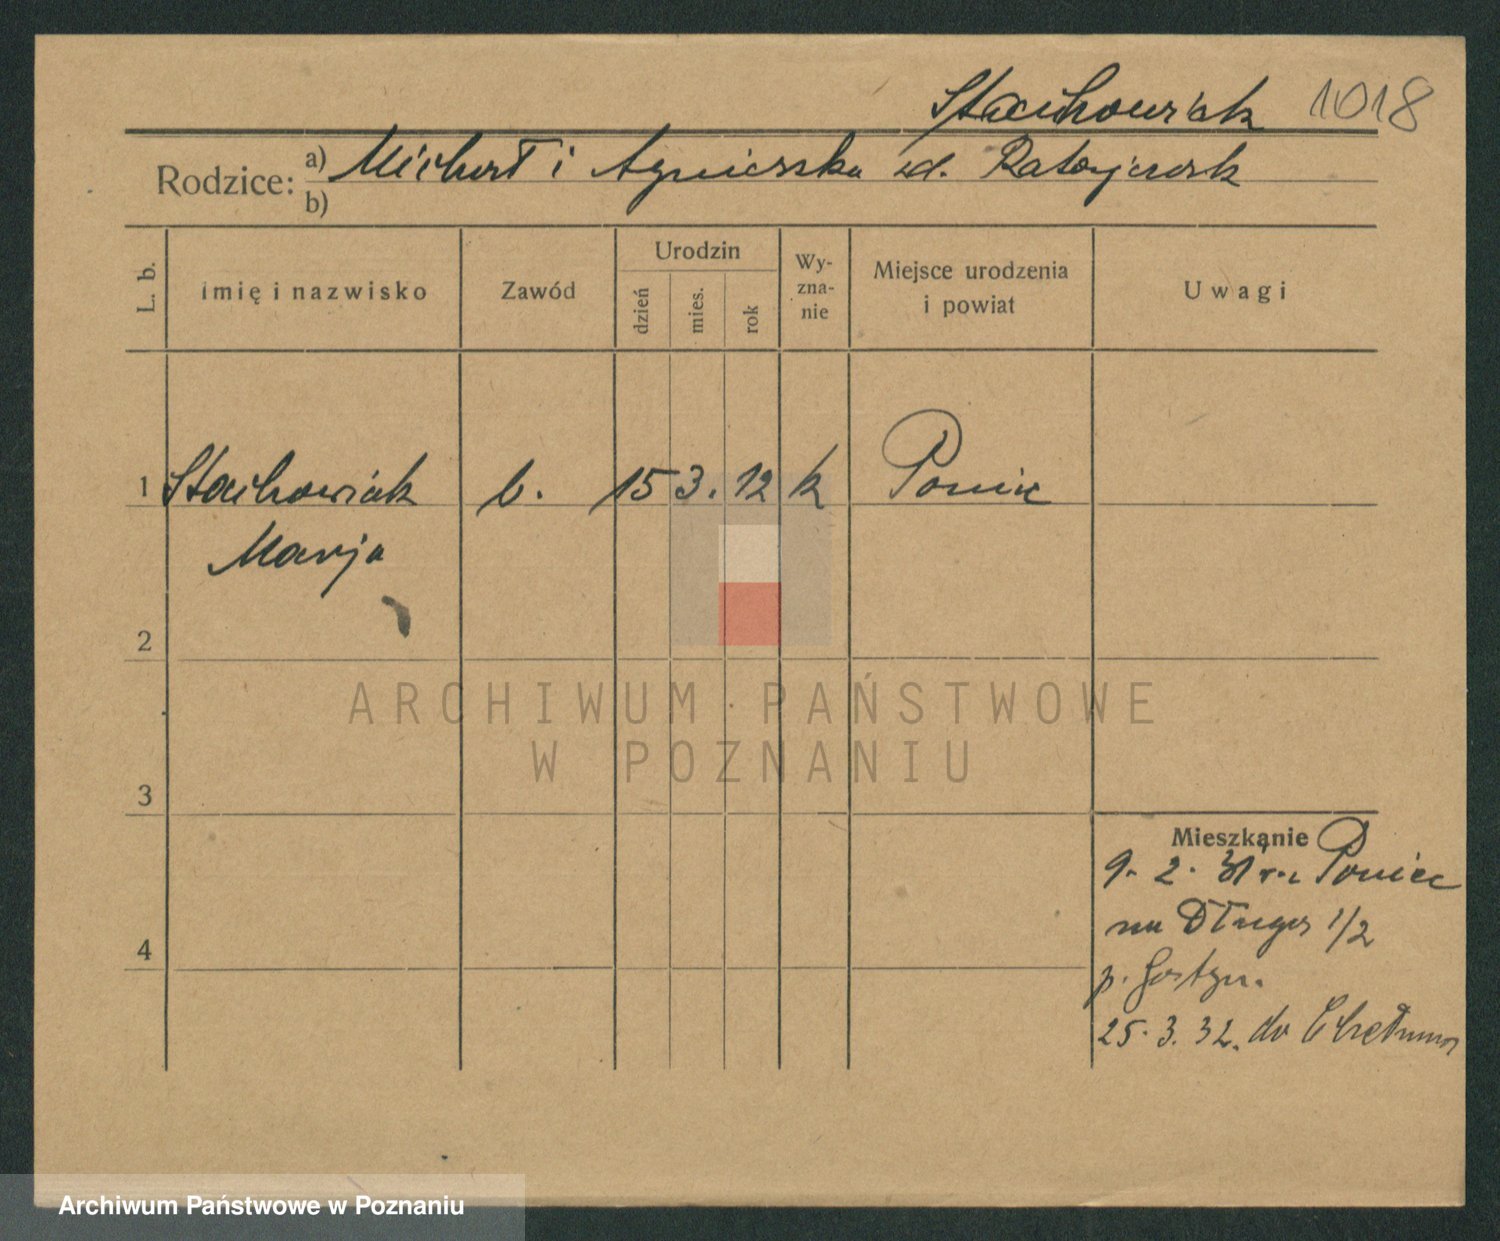 Stachowiak 1018
Rodzice: a) Michał i Agnieszka zd. Ratajczak
b)
L. b.
Imię i nazwisko
Zawód
Urodzin
dzień
mies.
rok
Wy-
zna-
nie
Miejsce urodzenia
i powiat
Uwagi
1 Stachowiak b. 15 3. 12 k Poniec
Marja
2
3
4
Mieszkanie
9. 2. 31 r. z Poniec
na Długa 1/2
p. Gostyn.
25. 3. 32. do
ARCHIWUM PAŃSTWOWE
W POZNANIU
Archiwum Państwowe w Poznaniu